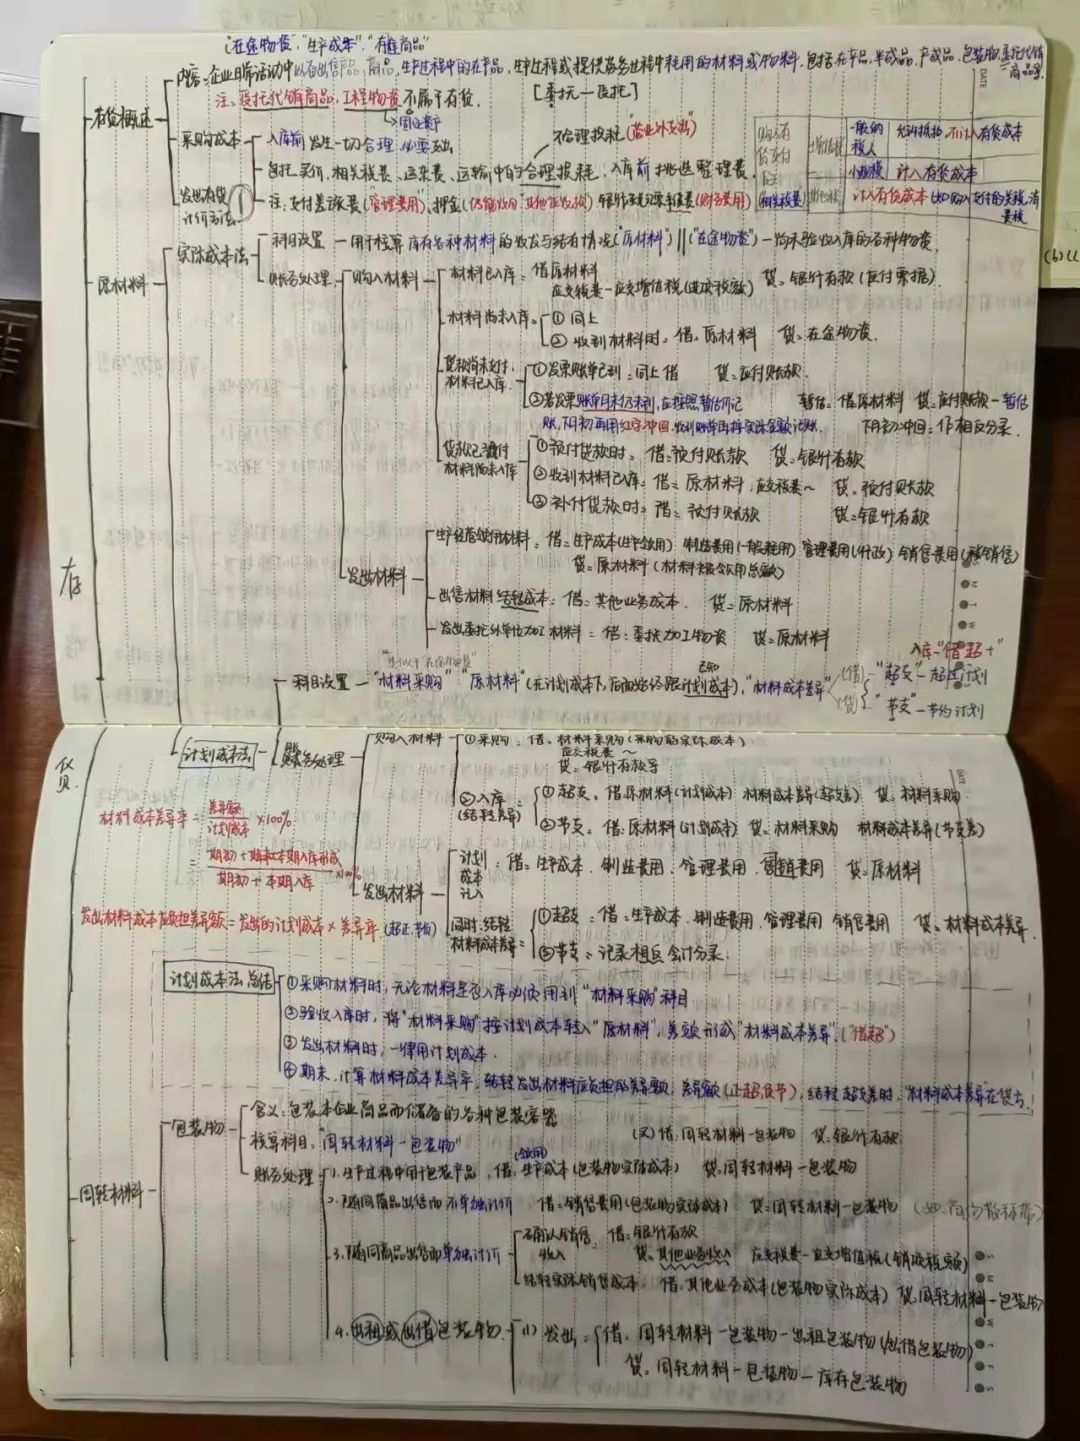 “在途物资”“生产成本”“在途商品”
内容：企业日常活动中以备出售产品、商品，生产过程中的在产品，生产过程或提供劳务过程中耗用的材料或物料，包括在产品，半成品，产成品，包装物，委托代销商品等
注：受托代销商品，工程物资不属于存货. [委托—受托]
存货概述
采购成本
入库前发生一切合理 必要支出
不合理损耗(营业外支出)
包括买价，相关税费、运杂费、运输中的合理损耗、入库前挑选整理费.
注：支付差旅费(管理费用)、押金
一般纳税人 允许抵扣，不计入存货成本
小规模 计入存货成本
计入存货成本
发出存货计价方法 ①
原材料
实际成本法
科目设置 — 用于核算库存各种材料的收发与结存情况(“原材料”) || (“在途物资”) — 尚未验收入库的各种物资.
账务处理
购入材料
材料已入库：借：原材料
应交税费—应交增值税(进项税额) 贷：银行存款(应付票据)
材料尚未入库.
①同上
②收到材料时，借：原材料 贷：在途物资.
货款尚未支付，材料已入库.
①发票账单已到：同上借 贷：应付账款.
②若发票账单月末仍未到，应按照暂估价记 暂估：借：原材料 贷：应付账款—暂估
账，下月初再用红字冲回，收到账单再按实际金额记账. 下月初冲回：作相反分录.
货款已预付 材料尚未入库
①预付货款时：借：预付账款 贷：银行存款
②收到材料已入库：借：原材料，应交税费~ 贷：预付账款
③补付货款时：借：预付账款 贷：银行存款
发出材料
生产经营领用材料：借：生产成本(生产领用) 制造费用(一般耗用) 管理费用(行政) 销售费用(销售)
贷：原材料(材料被领用总额)
出售材料结转成本：借：其他业务成本. 贷：原材料
发出委托外单位加工材料：借：委托加工物资 贷：原材料
存货
入库“借超+”
科目设置 — “材料采购” “原材料” “材料成本差异”
(借) “超支”—超过计划
(贷) “节支”—节约计划
计划成本法
账务处理
购入材料
①采购：借：材料采购(采购的实际成本)
应交税费~
贷：银行存款等
②入库：(结转差异)
①超支：借：原材料(计划成本) 材料成本差异(超支差) 贷：材料采购
②节支：借：原材料(计划成本) 贷：材料采购 材料成本差异(节支差)
材料成本差异率 = 差异额/计划成本 ×100%
发出材料
计划成本计入
借：生产成本，制造费用，管理费用，销售费用 贷：原材料
发出材料成本应负担差异额 = 发出的计划成本 × 差异率.(超正节负)
同时，结转材料成本差异：
①超支：借：生产成本，制造费用，管理费用 销售费用 贷：材料成本差异.
②节支：记录相反会计分录.
计划成本法总结
①采购材料时，无论材料是否入库必须用到“材料采购”科目
②验收入库时，将“材料采购”按计划成本转入“原材料”，差额形成“材料成本差异”.(“借超”)
③发出材料时，一律用计划成本.
④期末，计算材料成本差异率，结转发出材料应负担的差异额，差异额(正超负节)，结转超支差时，“材料成本差异”在贷方.
周转材料
包装物
含义：包装本企业商品而储备的各种包装容器
核算科目：“周转材料—包装物” (买)借：周转材料—包装物 贷：银行存款
账务处理
1.生产过程中用于包装产品，借：生产成本(包装物实际成本) 贷：周转材料—包装物
2.随同商品出售而不单独计价 借：销售费用(包装物实际成本) 贷：周转材料—包装物
3.随同商品出售而单独计价
确认销售收入 借：银行存款
贷：其他业务收入 应交税费—应交增值税(销项税额)
结转实际销售成本. 借：其他业务成本(包装物实际成本) 贷：周转材料—包装物
4.出租或出借包装物
(1)发出：借：周转材料—包装物—出租包装物(出借包装物)
贷：周转材料—包装物—库存包装物